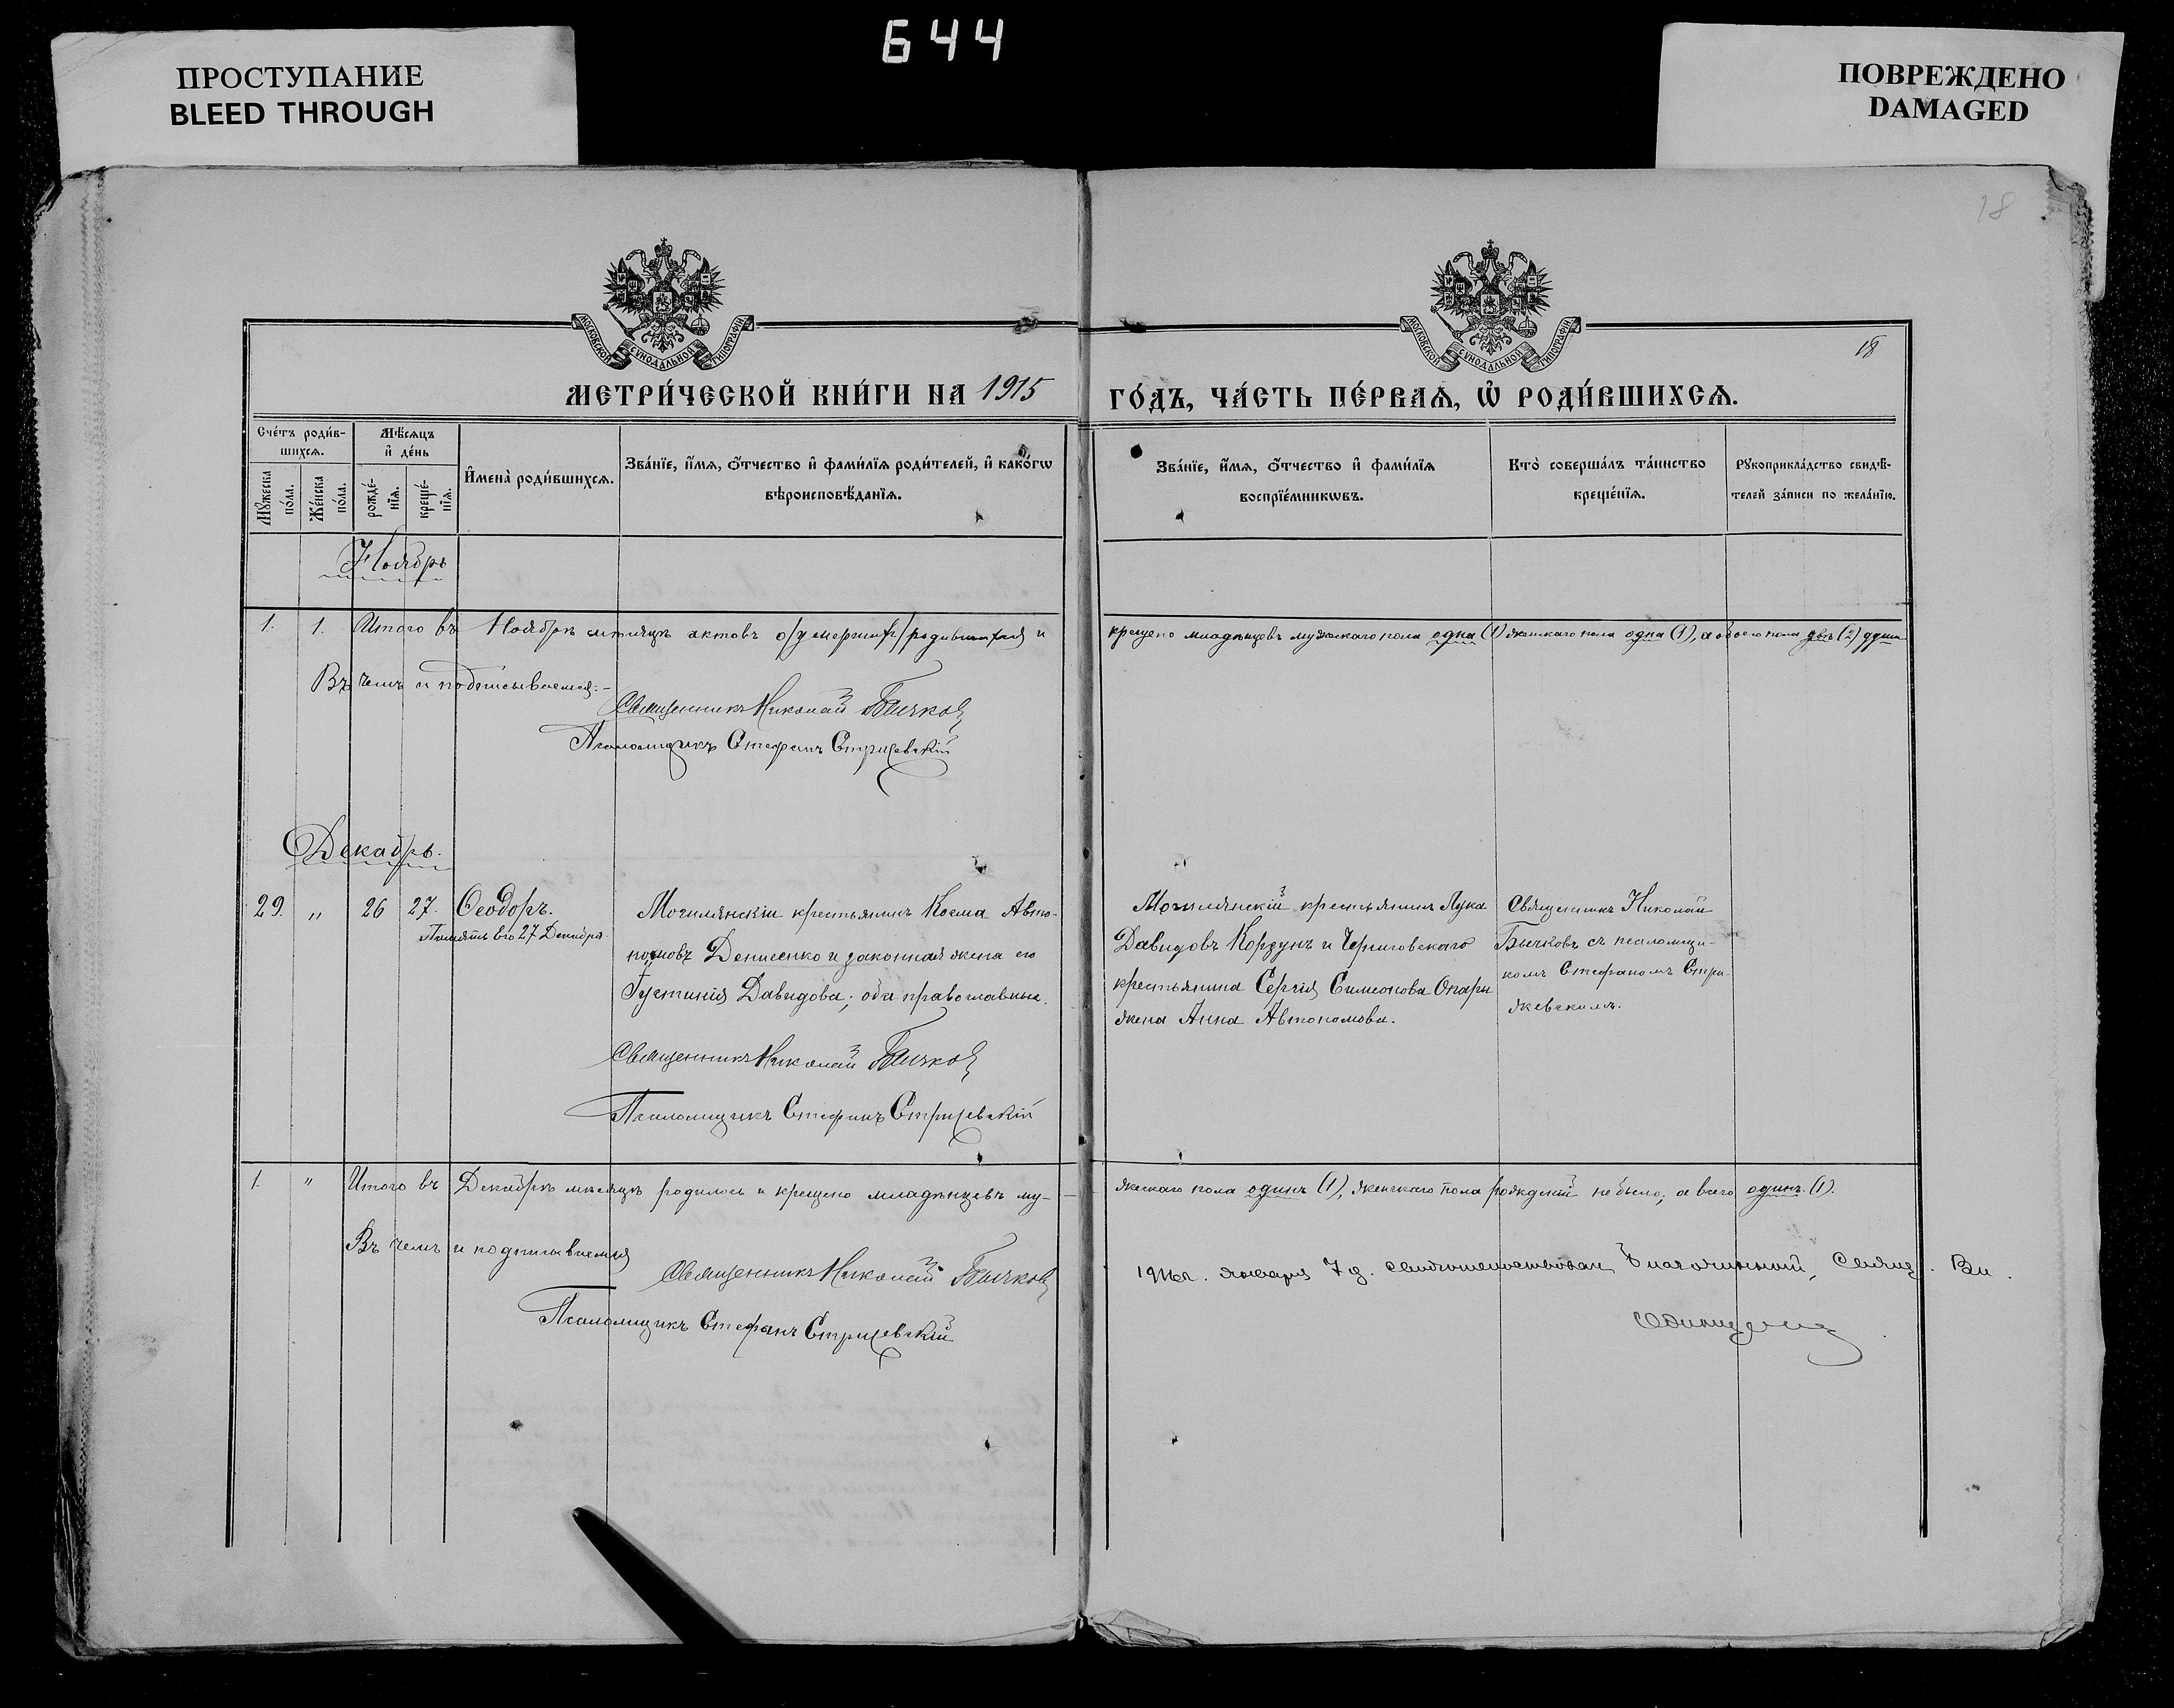 644
ПРОСТУПАНИЕ
BLEED THROUGH
ПОВРЕЖДЕНО
DAMAGED
18
МОСКОВСКОЙ СѴНОДАЛЬНОЙ ТИПОГРАФІИ
МОСКОВСКОЙ СѴНОДАЛЬНОЙ ТИПОГРАФІИ
18
МЕТРИ́ЧЕСКОЙ КНИ́ГИ НА 1915 ГО́ДЪ, ЧА́СТЬ ПЕ́РВАѦ, Ѡ҆ РОДИ́ВШИХСѦ.
Сче́тъ роди́в-
шихсѧ.
Мꙋ́жеска по́ла.
Же́нска по́ла.
Мѣ́сѧцъ
и҆ де́нь
рожде́-
нїѧ.
креще́-
нїѧ.
И҆мена̀ роди́вшихсѧ.
Зва́нїе, и҆́мѧ, ѻ҆́тчество и҆ фами́лїѧ роди́телей, и҆ како́гѡ
вѣроисповѣ́данїѧ.
Зва́нїе, и҆́мѧ, ѻ҆́тчество и҆ фами́лїѧ
воспрїе́мникѡвъ.
Кто̀ соверша́лъ та́инство
креще́нїѧ.
Рꙋкоприкла́дство свидѣ́-
телей за́писи по жела́нїю.
Ноябрь
1. 1. Итого въ Ноябрѣ мѣсяцѣ актовъ о родившихся и крещено младѣнцевъ мужескаго пола одна (1) женскаго пола одна (1), а обоего пола двѣ (2) души
Въ чемъ и подписываемся:-
Священникъ Николай Бычковъ
Псаломщикъ Стефанъ Стрижевскій
Декабрь.
29. " 26 27. Ѳеодоръ.
Память его 27 Декабря.
Могилянскій крестьянинъ Косма Авто-
номовъ Денисенко и законная жена его
Іустинія Давидова; оба православные.
Могилянскій крестьянинъ Лука
Давидовъ Кордунъ и Черниговскаго
крестьянина Сергія Симеонова Опары
жена Анна Автономова.
Священникъ Николай
Бычковъ съ псаломщи-
комъ Стефаномъ Стри-
жевскимъ.
Священникъ Николай Бычковъ
Псаломщикъ Стефанъ Стрижевскій
1. " Итого въ Декабрѣ мѣсяцѣ родилось и крещено младѣнцевъ му- жескаго пола одинъ (1), женскаго пола рожденій не было; а всего одинъ. (1).
Въ чемъ и подписываемся
Священникъ Николай Бычковъ
Псаломщикъ Стефанъ Стрижевскій
1916 г. января 7 д. свидѣтельствовалъ благочинный, Свящ. Вл.